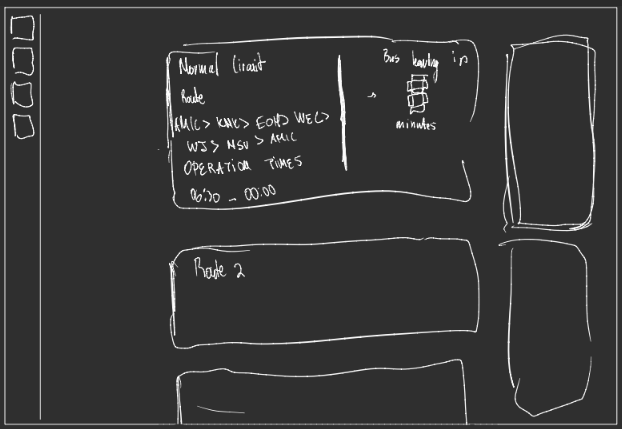 Normal Circuit
Route
AMIC > KMC > EOH > WEC >
WJ > MSU > AMIC
OPERATION TIMES
06:30 - 00:00
Bus leaving in
minutes
Route 2